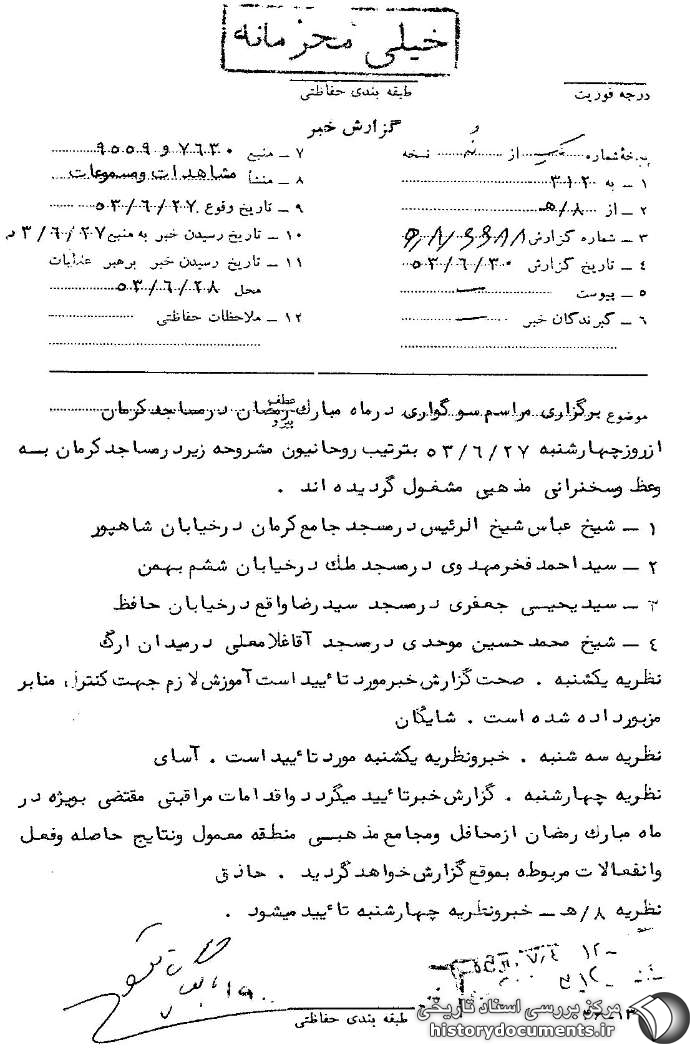 خیلی محرمانه
طبقه بندی حفاظتی
درجه فوریت
گزارش خبر
نسخه شماره یک از نسخه
۱ ـ به ۳۱۲
۲ ـ از ۸/ه‍
۳ ـ شماره گزارش
۴ ـ تاریخ گزارش ۵۳/۶/۳۰
۵ ـ پیوست
۶ ـ گیرندگان خبر
۷ ـ منبع ۷۶۳۰ و ۹۵۵۹
۸ ـ منشأ مشاهدات ومسموعات
۹ ـ تاریخ وقوع ۵۳/۶/۲۷
۱۰ ـ تاریخ رسیدن خبر به منبع ۵۳/۶/۲۷
۱۱ ـ تاریخ رسیدن خبر برهبر عملیات
محل ۵۳/۶/۲۸
۱۲ ـ ملاحظات حفاظتی
موضوع برگزاری مراسم سوگواری درماه مبارك رمضان درمساجدکرمان
عطف
پیرو
ازروزچهارشنبه ۵۳/۶/۲۷ بترتیب روحانیون مشروحه زیردرمساجدکرمان بسه
وعظ وسخنرانی مذهبی مشغول گردیده اند .
۱ ـ شیخ عباس شیخ الرئیس درمسجد جامع کرمان درخیابان شاهپور
۲ ـ سید احمد فخرمهدوی درمسجد ملك درخیابان ششم بهمن
۳ ـ سیدیحیی جعفری درمسجد سیدرضاواقع درخیابان حافظ
۴ ـ شیخ محمدحسین موحدی درمسجد آقاغلامعلی درمیدان ارگ
نظریه یکشنبه . صحت گزارش خبرمورد تائیداست آموزش لازم جهت کنترل منابر
مزبورداده شده است . شایگان
نظریه سه شنبه . خبرونظریه یکشنبه مورد تائیداست . آسای
نظریه چهارشنبه . گزارش خبرتائید میگردد واقدامات مراقبتی مقتضی بویژه در
ماه مبارك رمضان ازمحافل ومجامع مذهبی منطقه معمول ونتایج حاصله وفعل
وانفعالات مربوطه بموقع گزارش خواهدگردید . حاذق
نظریه ۸/ه‍ ـ خبرونظریه چهارشنبه تائید میشود .
طبقه بندی حفاظتی
مرکز بررسی اسناد تاریخی
historydocuments.ir